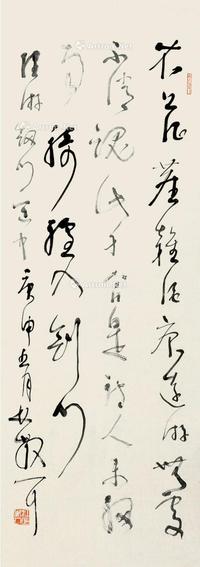 衣上征尘杂酒痕远游无处
不消魂此身合是诗人未细
雨骑驴入剑门
陆游剑门道中庚申五月林散耳